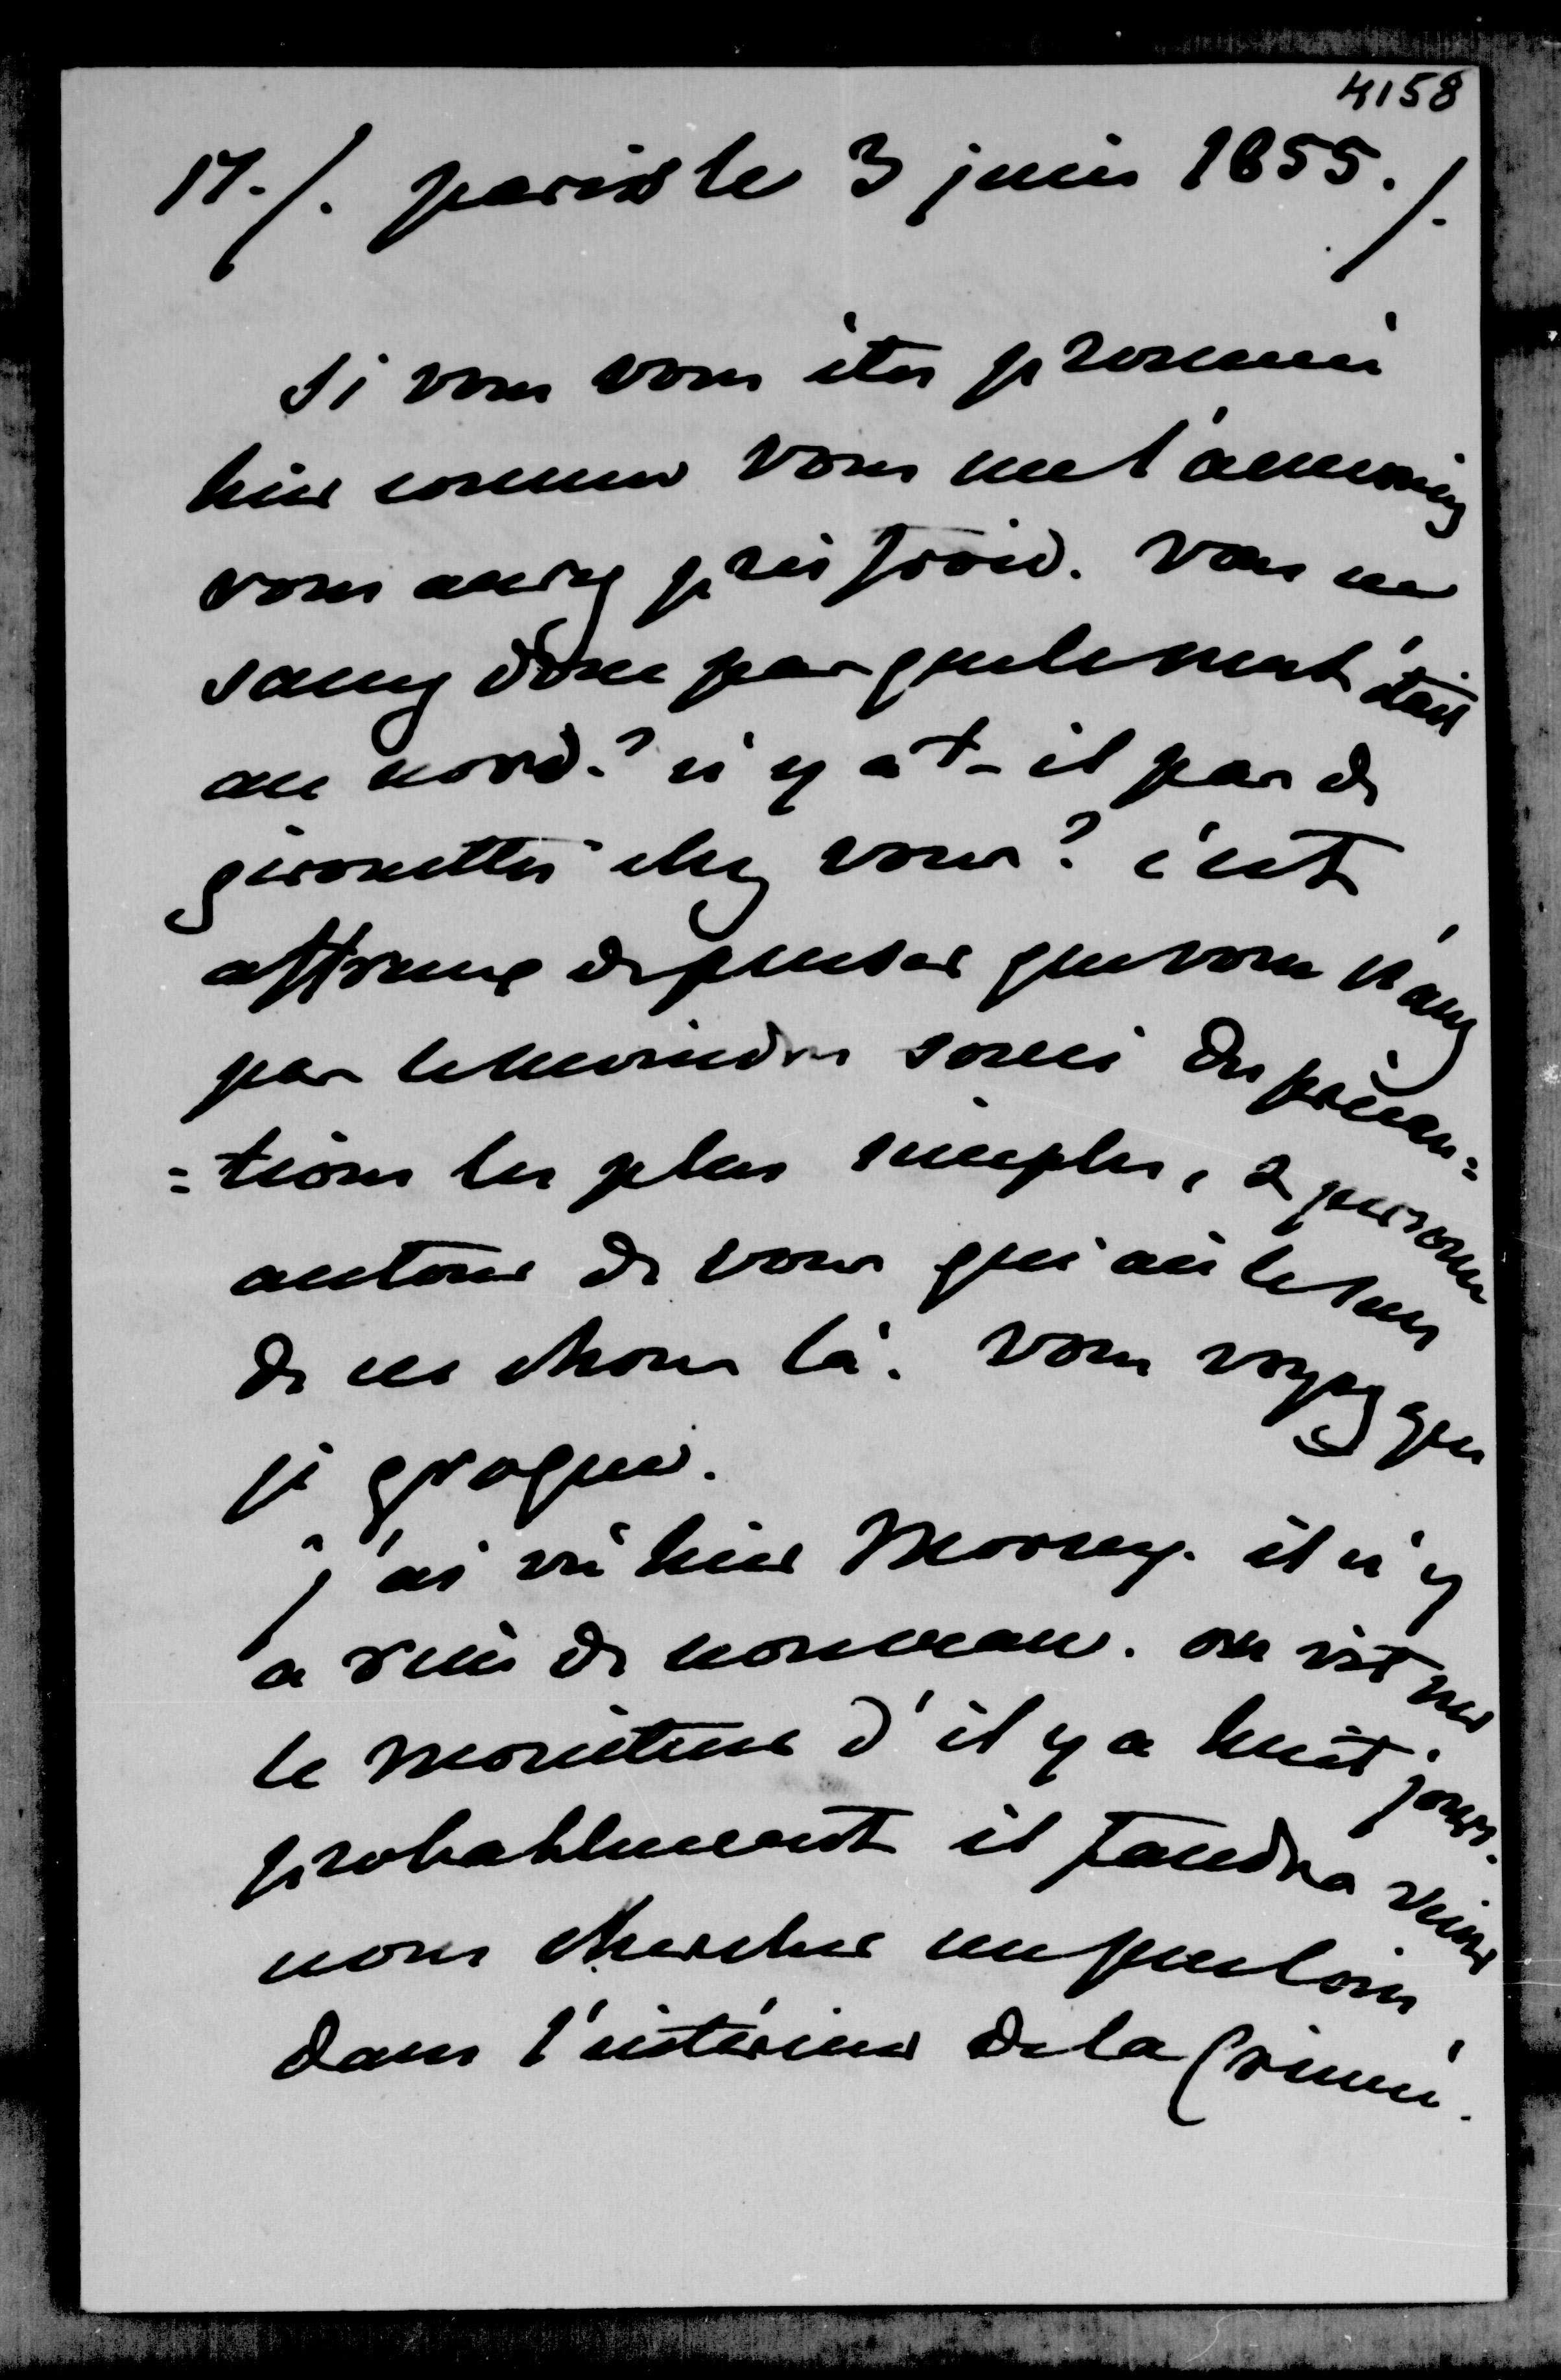 4158
17./. paris le 3 juin 1855./.
Si vous vous êtes promené
hier comme vous me l'annonciez
vous aurez pris froid. Vous ne
savez donc pas que le vent était
au nord? n'y a t-il pas de
girouettes chez vous? c'est
affreux de penser que vous n'avez
pas le moindre souci des précau=
=tions les plus simples, & personne
autour de vous qui ait le sens
de ces choses là. vous voyez que
je grogne.
j'ai vu hier Morny. il n'y
a rien de nouveau. on vit sur
le Moniteur d'il y a huit jours.
probablement il faudra venir
nous chercher un peu loin
dans l'intérieur de la Crimée.